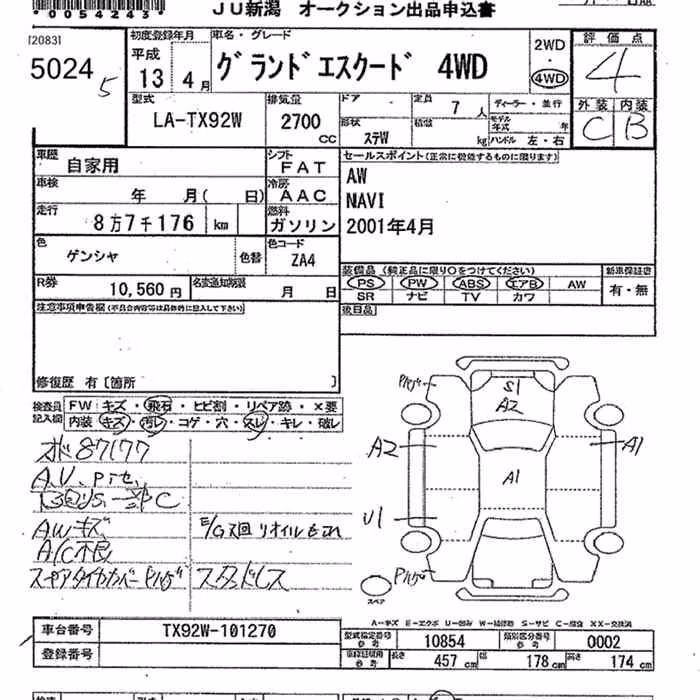 *0054243*
JU新潟 オークション出品申込書
[2083]
50245
初度登録年月
平成
13 4月
車名・グレード
グランドエスクード 4WD
2WD
・
4WD
評価点
4
型式
LA-TX92W
排気量
2700
CC
ドア
定員
7人
ディーラー・並行
モデル年式
年
形状
ステW
積載
kg
ハンドル 左・右
外装 内装
C B
車歴
自家用
シフト
FAT
セールスポイント(正常に機能するものに限ります)
AW
NAVI
2001年4月
車検
年 月( 日)
冷房
AAC
走行
8万7千176 km
燃料
ガソリン
色
ゲンシャ
色替
色コード
ZA4
R券
10,560円
名変通知期限
月 日
装備品(純正品に限り○をつけてください)
新車保証書
PS PW ABS エアB AW
有・無
SR ナビ TV カワ
後日品
注意事項申告欄(不具合内容等は具体的に記入して下さい)
修復歴 有〔箇所 〕
検査員
記入欄
FW:キズ・飛石・ヒビ割・リペア跡・×要
内装:キズ・汚レ・コゲ・穴・スレ・キレ・破レ
メ 87177
AWキズ
A/C不良
E/G
スペアタイヤカバー
S1
A2
A2
A1
A1
U1
スペア
A-キズ E-エクボ U-凹み W-補修跡 S-サビ C-腐食 XX-交換済
車台番号
TX92W-101270
型式指定番号
参考
10854
類別区分番号
参考
0002
登録番号
車検証記載
参考
長さ
457cm
幅
178cm
高さ
174cm